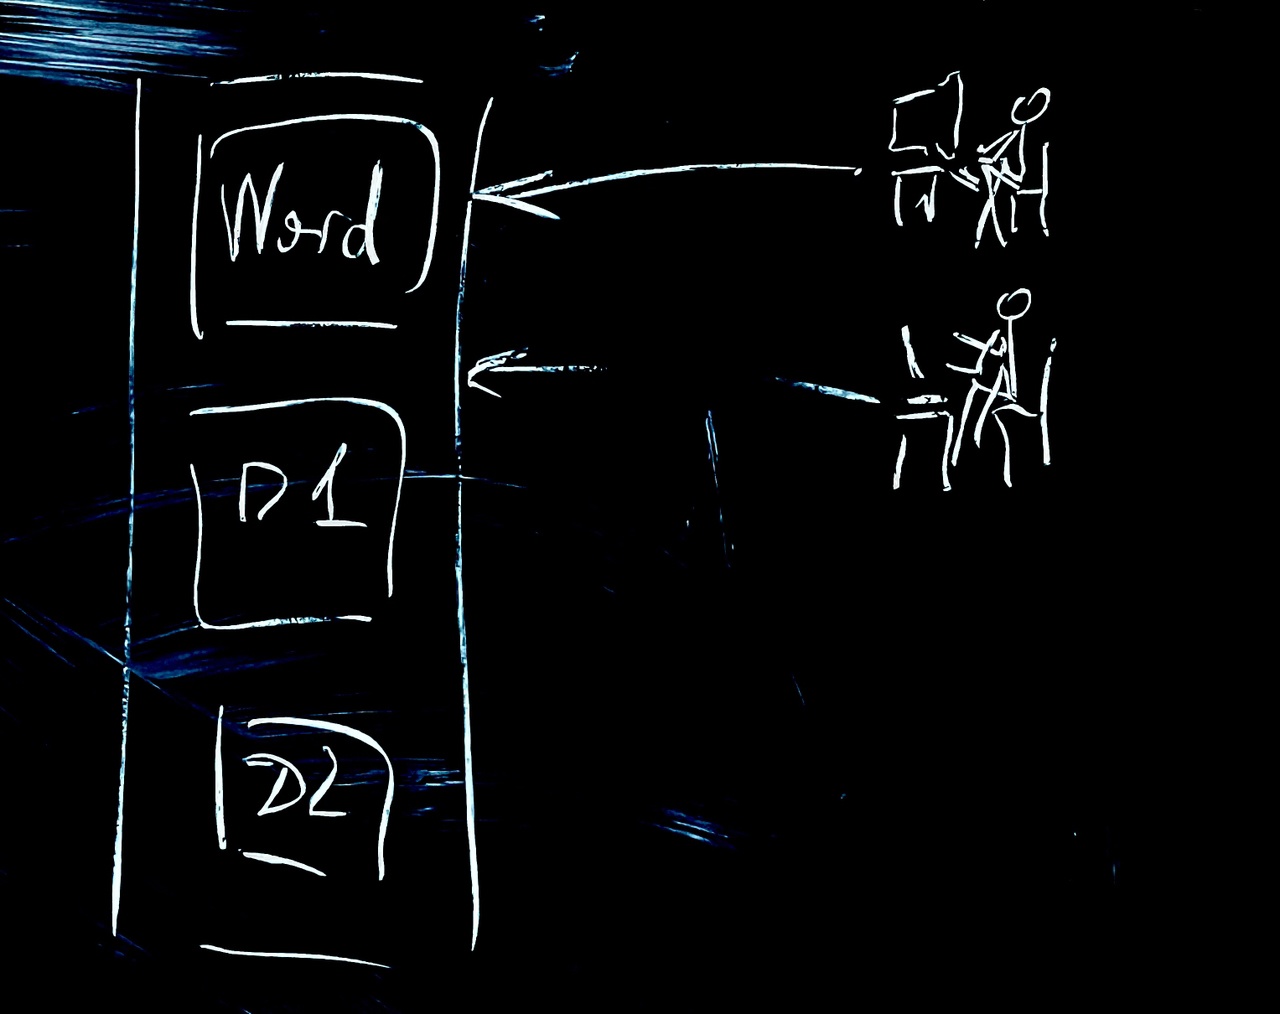 Word
D1
D2